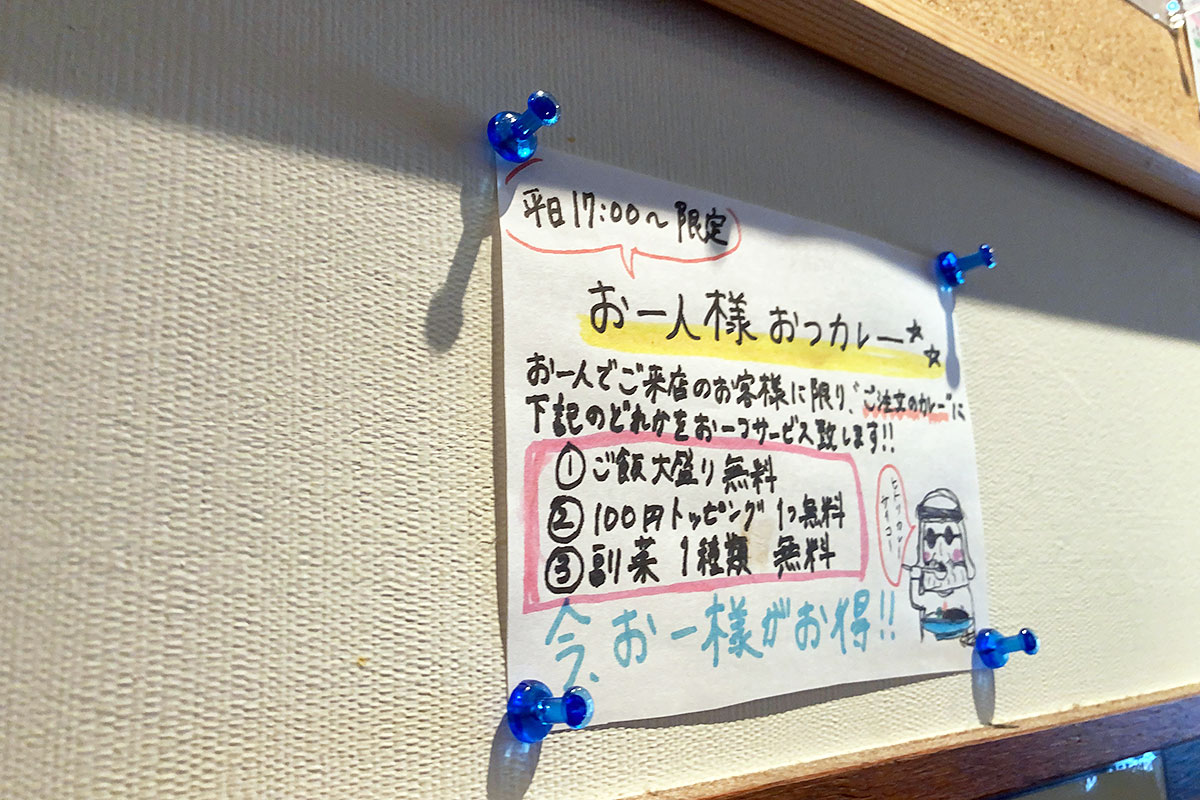 平日17:00〜限定
お一人様 おつカレー☆☆
お一人でご来店のお客様に限り、"ご注文のカレー"に
下記のどれかをお一つサービス致します!!
①ご飯大盛り無料
②100円トッピング 1つ無料
③副菜 1種類 無料
今、お一様がお得!!